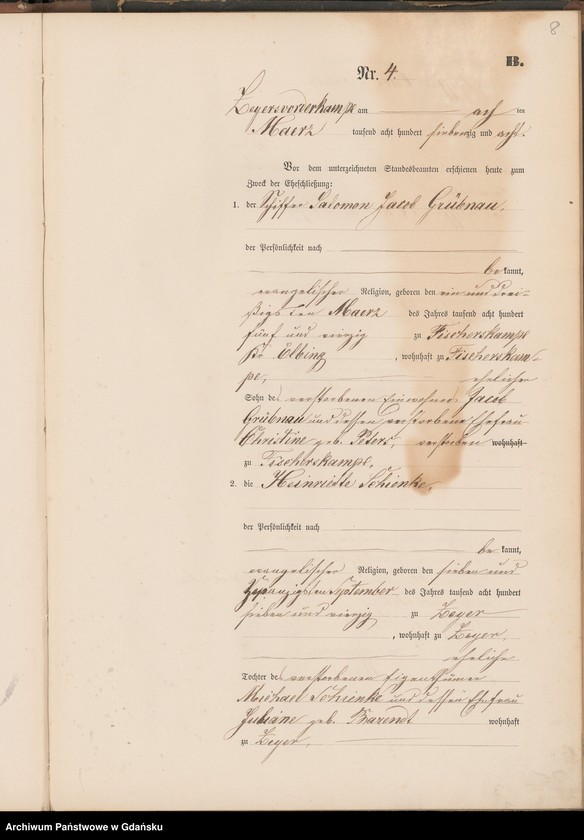 8
B.
Nr. 4.
Zeyersvorderkampe am ach ten
Maerz tausend acht hundert siebenzig und acht.
Vor dem unterzeichneten Standesbeamten erschienen heute zum
Zweck der Eheschließung:
1. der Schiffer Salomon Jacob Grübnau,
der Persönlichkeit nach
be kannt,
evangelischer Religion, geboren den ein und drei-
ßigsten Maerz des Jahres tausend acht hundert
fünf und vierzig zu Fischerskampe
Elbing, wohnhaft zu Fischerskam-
pe, ehelicher
Sohn des verstorbenen Einwohners Jacob
Grübnau und dessen verstorbene Ehefrau
Christine geb. Peters, verstorben wohnhaft
zu Fischerskampe.
2. die Heinriette Schienke,
der Persönlichkeit nach
be kannt,
evangelischer Religion, geboren den sieben und
zwanzigsten September des Jahres tausend acht hundert
sieben und vierzig zu Zeyer
, wohnhaft zu Zeyer,
eheliche
Tochter des verstorbenen Eigenthümer
Michael Schienke und dessen Ehefrau
Juliane geb. Barendt wohnhaft
zu Zeyer,
Archiwum Państwowe w Gdańsku